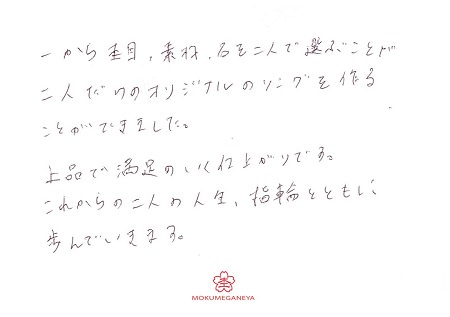 一から杢目、素材、石を二人で選ぶことが
二人だけのオリジナルのリングを作る
ことができました。
上品で満足のいく仕上がりです。
これからの二人の人生、指輪とともに
歩んでいきます。
杢
MOKUMEGANEYA